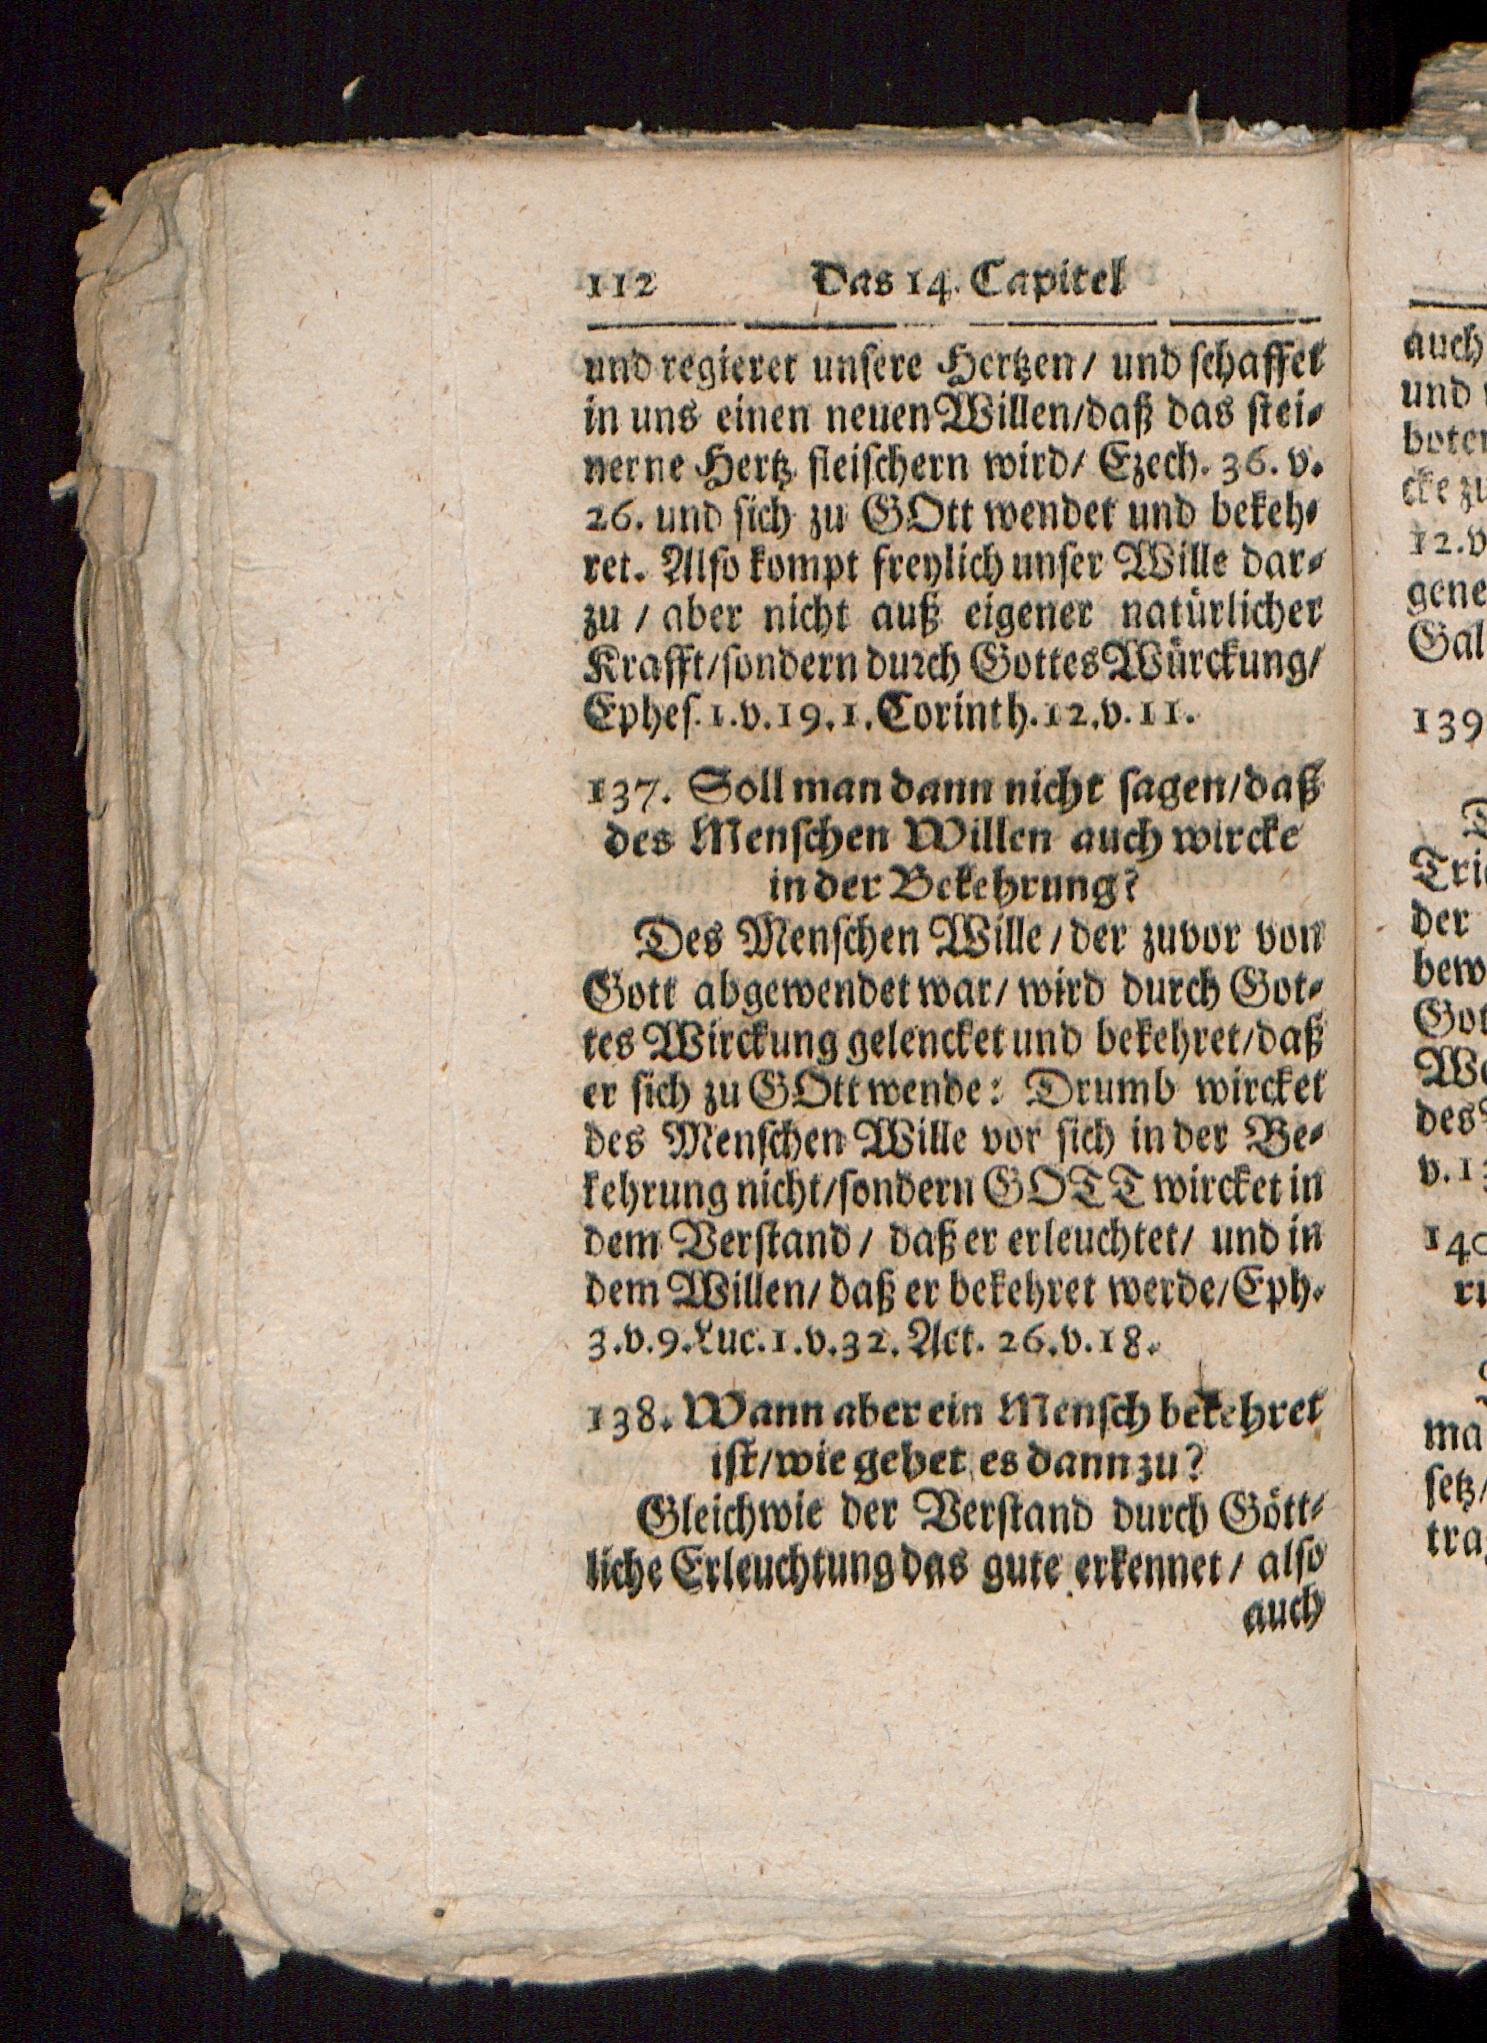 112 Das 14. Capitel
und regieret unsere Hertzen/ und schaffet
in uns einen neuen Willen/daß das stei-
nerne Hertz fleischern wird/ Ezech. 36. v.
26. und sich zu GOtt wendet und bekeh-
ret. Also kompt freylich unser Wille dar-
zu / aber nicht auß eigener natürlicher
Krafft/sondern durch Gottes Würckung/
Ephes. 1. v. 19. 1. Corinth. 12. v. 11.
137. Soll man dann nicht sagen/daß
des Menschen Willen auch wircke
in der Bekehrung?
Des Menschen Wille/der zuvor von
Gott abgewendet war/ wird durch Got-
tes Wirckung gelencket und bekehret/daß
er sich zu GOtt wende: Drumb wircket
des Menschen Wille vor sich in der Be-
kehrung nicht/sondern GOTT wircket in
dem Verstand/ daß er erleuchtet/ und in
dem Willen/ daß er bekehret werde/Eph.
3. v. 9. Luc. 1. v. 32. Act. 26. v. 18.
138. Wann aber ein Mensch bekehret
ist/wie gehet es dann zu?
Gleichwie der Verstand durch Gött-
liche Erleuchtung das gute erkennet/ also
auch
auch
und
12. v
Gal
139
der
bew
Got
des
v. 13
140
ma
setz/
tra